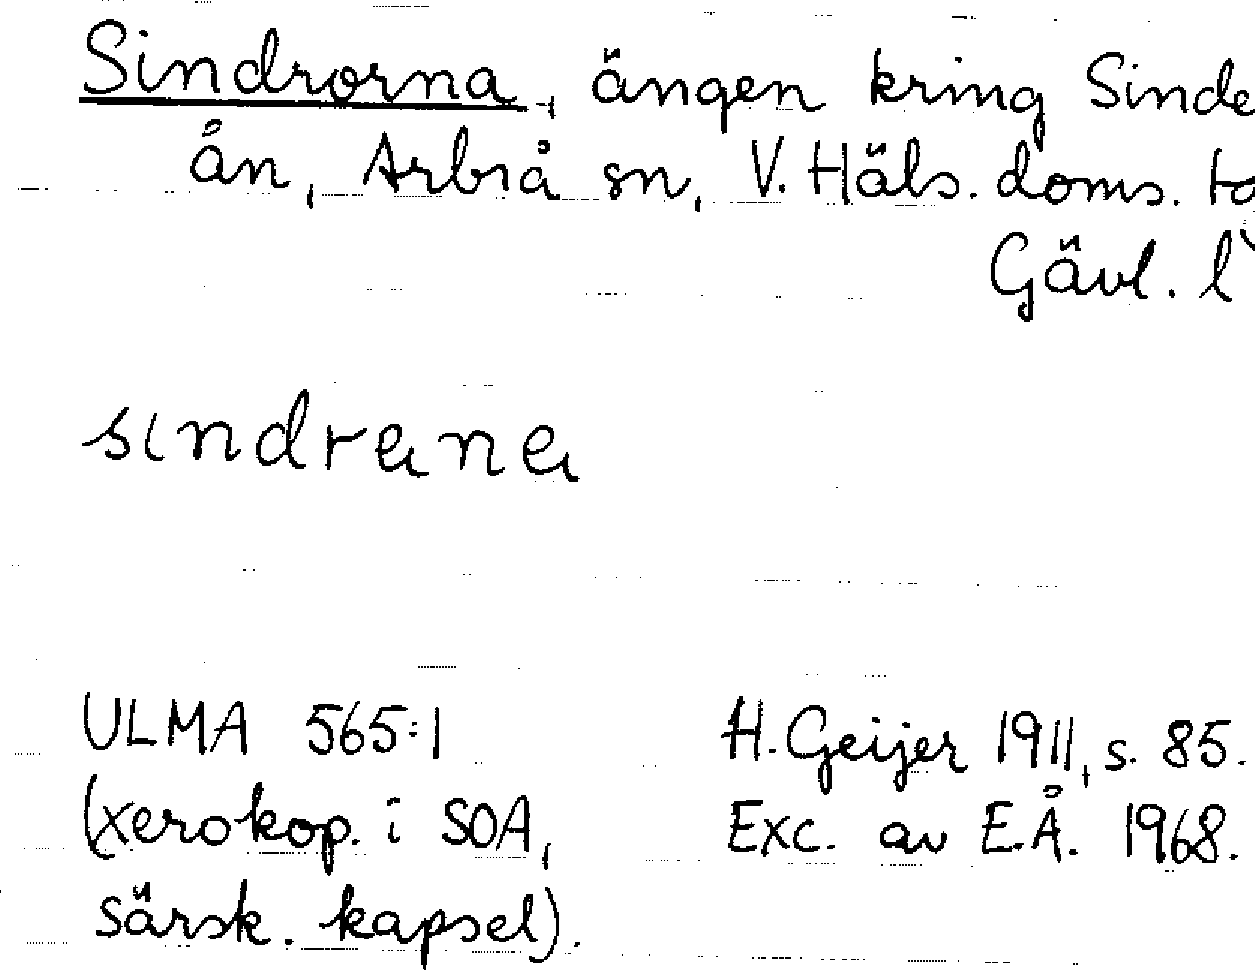 Sindrorna, ängen kring Sinde
ån, Arbrå sn, V. Häls. doms.
Gävl. l
sindrana
ULMA 565:1
(xerokop. i SOA,
särsk. kapsel).
H. Geijer 1911, s. 85.
Exc. av E.Å. 1968.